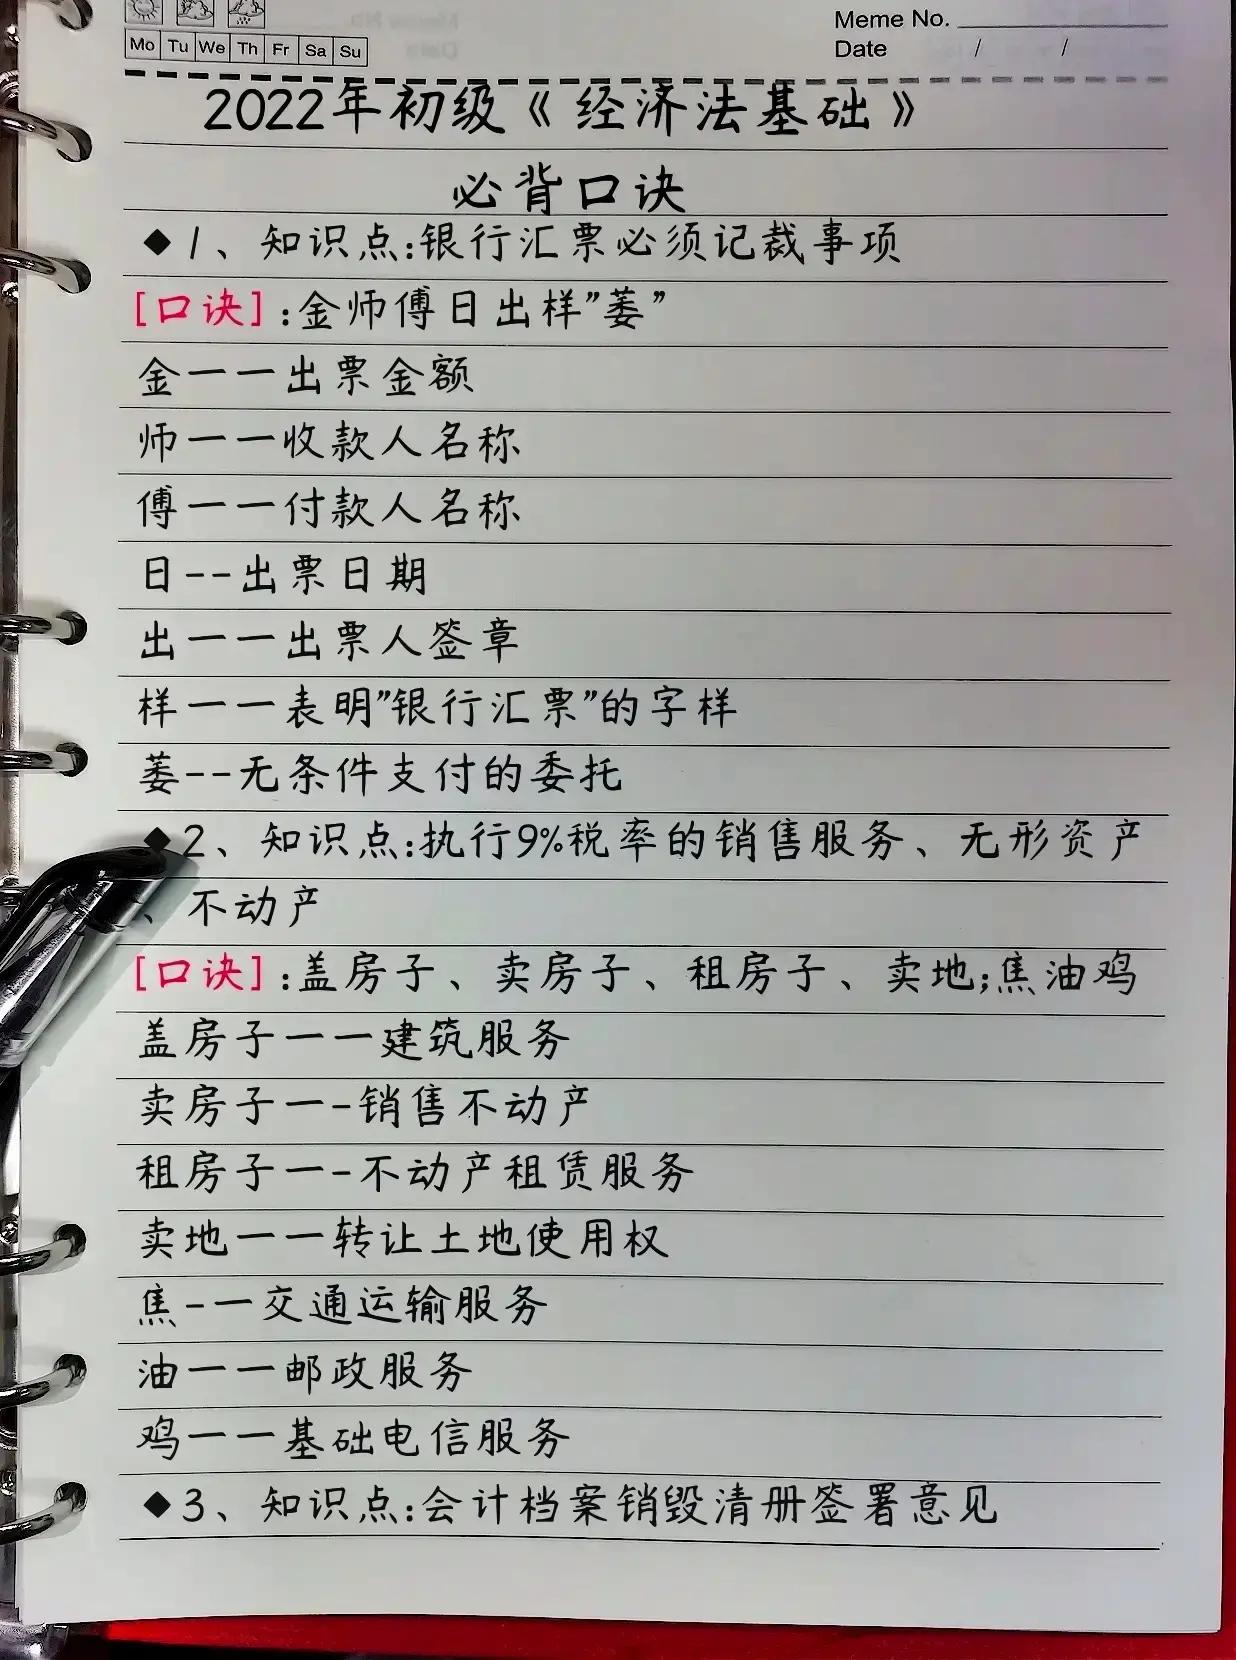 Meme No.
Mo Tu We Th Fr Sa Su
Date / /
2022年初级《经济法基础》
必背口诀
◆1、知识点:银行汇票必须记裁事项
[口诀]:金师傅日出样”萎”
金一一出票金额
师一一收款人名称
傅一一付款人名称
日--出票日期
出一一出票人签章
样一一表明”银行汇票”的字样
萎--无条件支付的委托
◆2、知识点:执行9%税率的销售服务、无形资产
、不动产
[口诀]:盖房子、卖房子、租房子、卖地;焦油鸡
盖房子一一建筑服务
卖房子一-销售不动产
租房子一-不动产租赁服务
卖地一一转让土地使用权
焦-一交通运输服务
油一一邮政服务
鸡一一基础电信服务
◆3、知识点:会计档案销毁清册签署意见